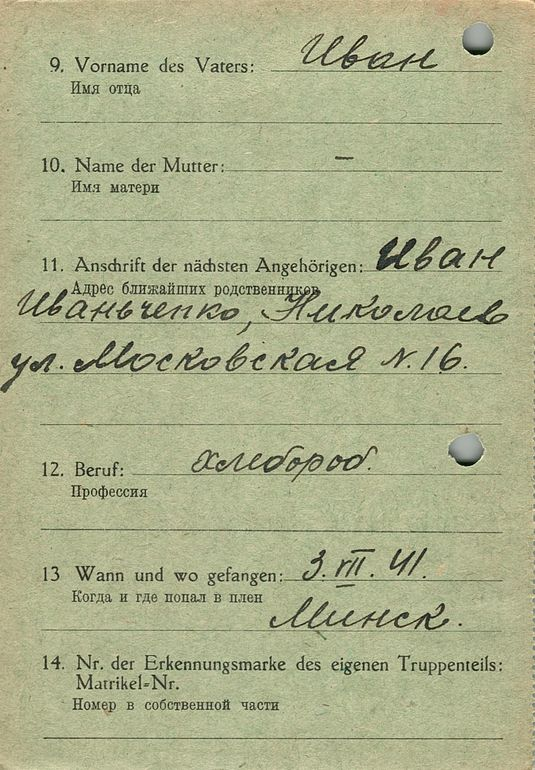 9. Vorname des Vaters: Иван
Имя отца
10. Name der Mutter: –
Имя матери
11. Anschrift der nächsten Angehörigen: Иван
Адрес ближайших родственников
Иваньченко, Николаев
ул. Московская N. 16.
12. Beruf: хлебороб.
Профессия
13 Wann und wo gefangen: 3. VII. 41.
Когда и где попал в плен
Минск.
14. Nr. der Erkennungsmarke des eigenen Truppenteils:
Matrikel-Nr.
Номер в собственной части